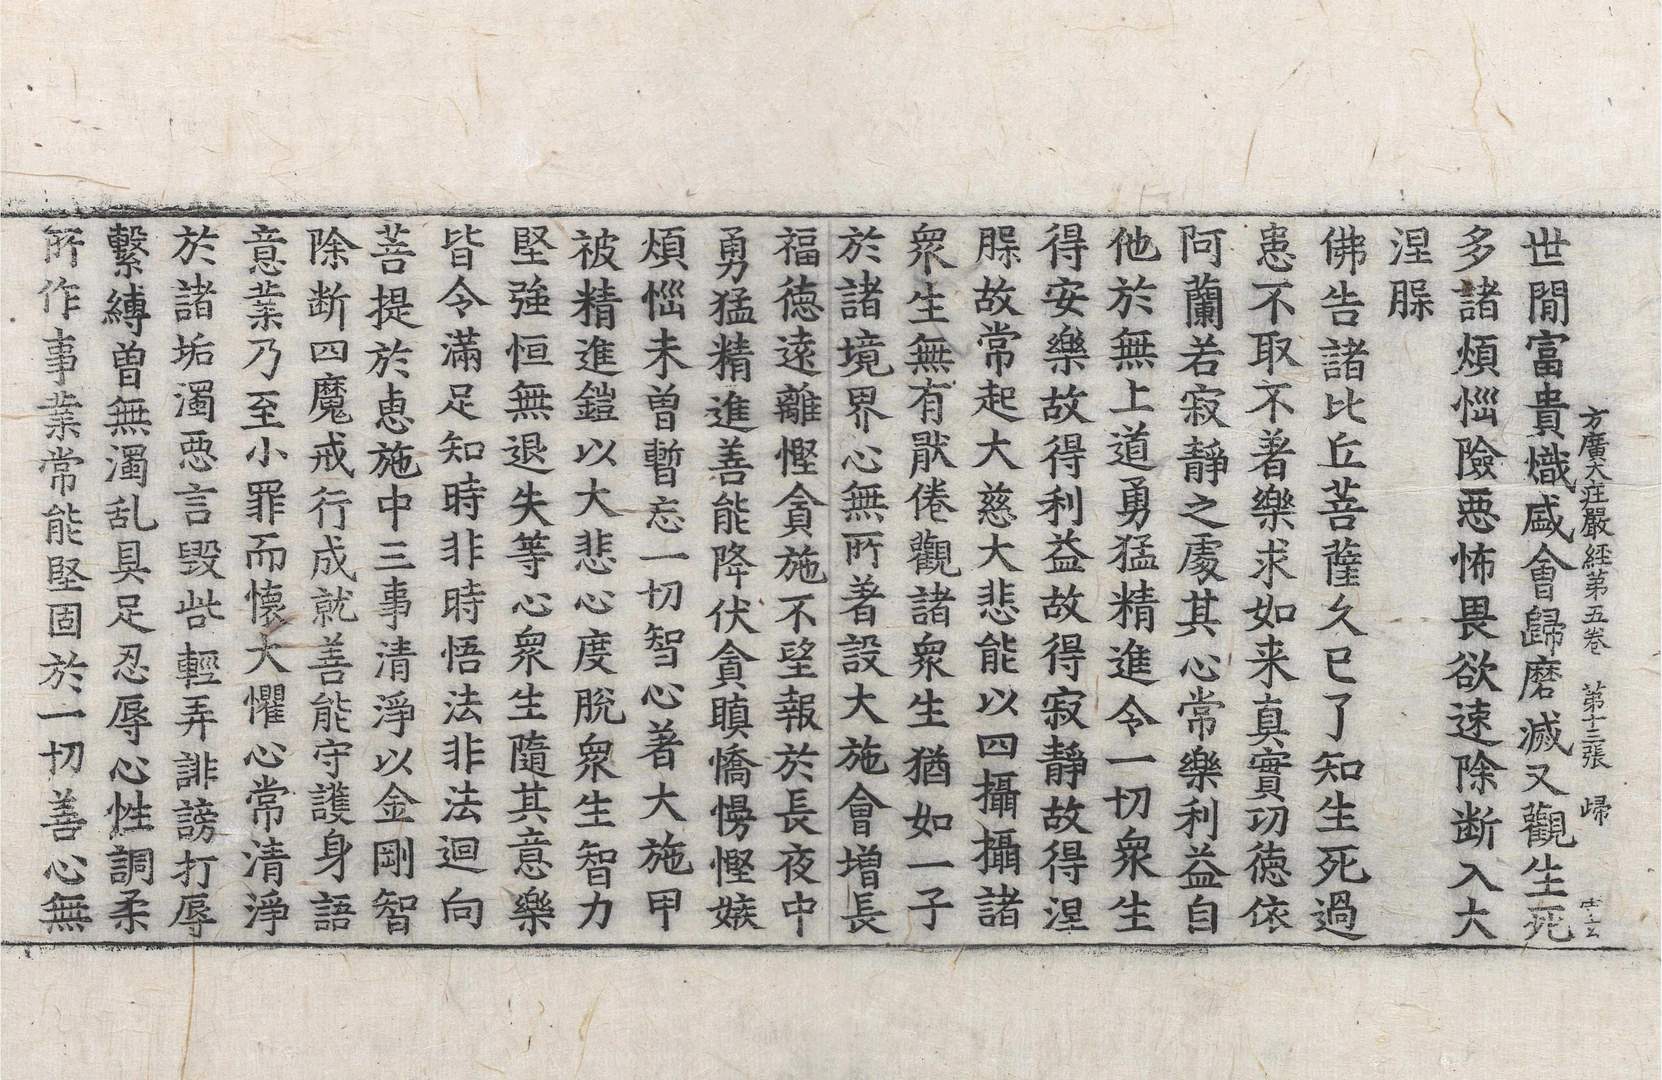 方廣大莊嚴經第五卷 第十三張 歸
世間富貴熾盛會歸磨滅又觀生死
多諸煩惱險惡怖畏欲速除断入大
涅槃
佛告諸比丘菩薩久已了知生死過
患不取不著樂求如来真實功德依
阿蘭若寂靜之處其心常樂利益自
他於無上道勇猛精進令一切衆生
得安樂故得利益故得寂靜故得涅
槃故常起大慈大悲能以四攝攝諸
衆生無有厭倦觀諸衆生猶如一子
於諸境界心無所著設大施會增長
福德遠離慳貪施不望報於長夜中
勇猛精進善能降伏貪瞋憍慢慳嫉
煩惱未曾暫忘一切智心著大施甲
被精進鎧以大悲心度脫衆生智力
堅強恒無退失等心衆生隨其意樂
皆令滿足知時非時悟法非法迴向
菩提於惠施中三事清淨以金剛智
除断四魔戒行成就善能守護身語
意業乃至小罪而懷大懼心常清淨
於諸垢濁惡言毀呰輕弄誹謗打辱
繫縛曾無濁乱具足忍辱心性調柔
所作事業常能堅固於一切善心無